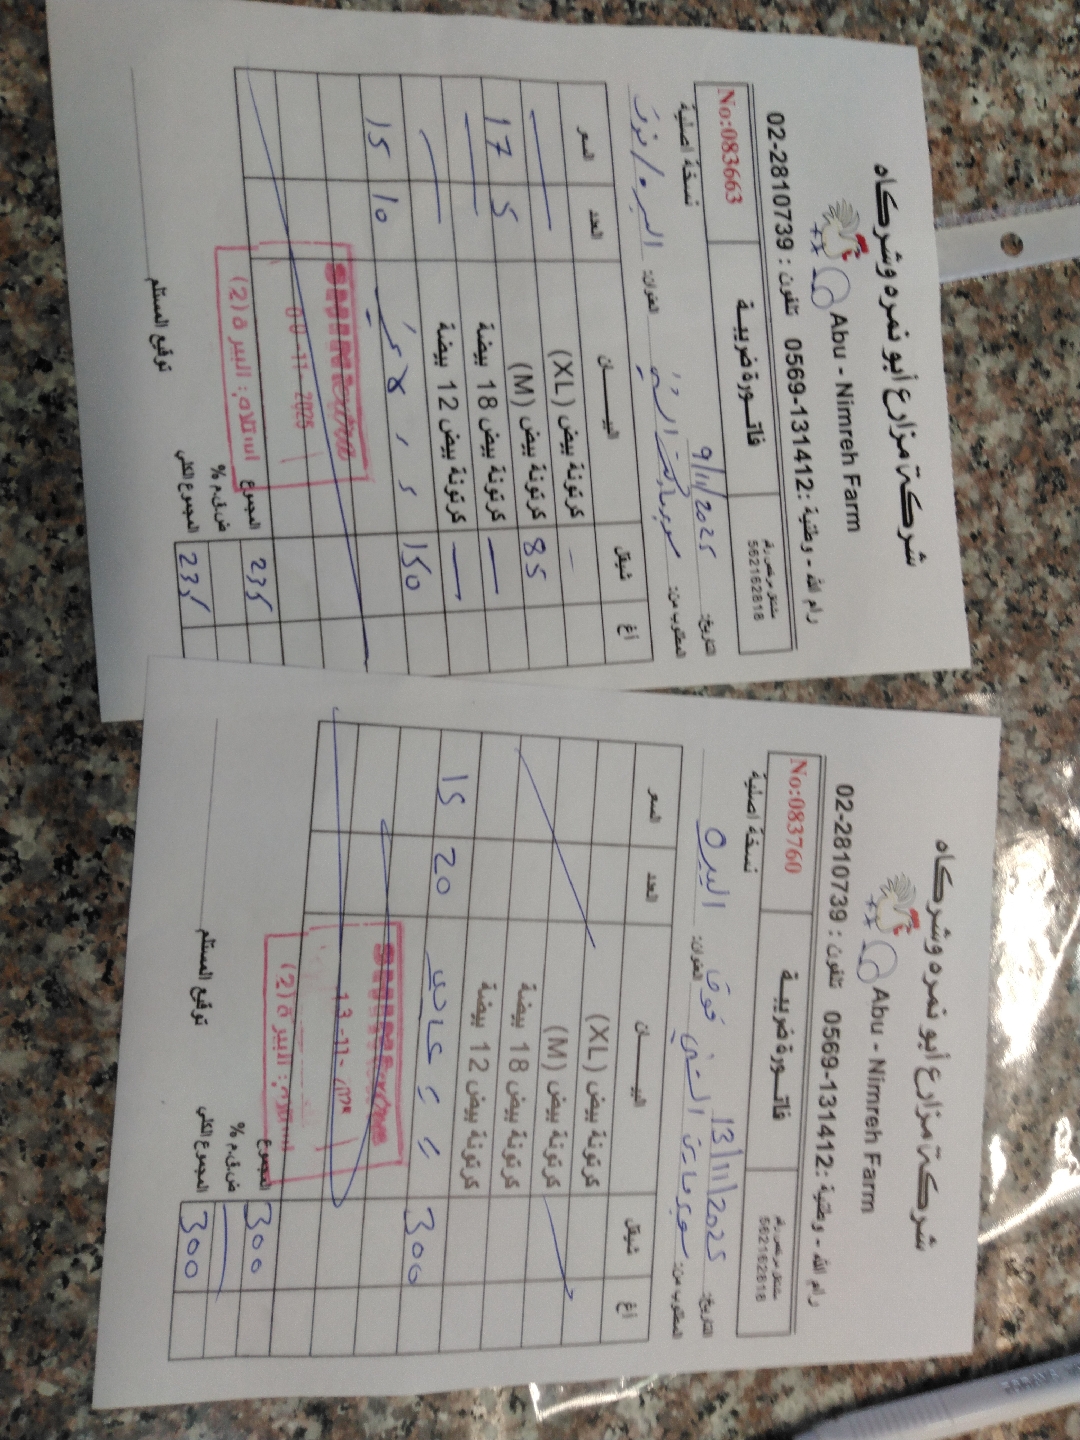 شركة مزارع أبو نمره وشركاه
Abu - Nimreh Farm
رام الله - وطنية : 0569-131412 تلفون : 02-2810739
مشتغل مرخص رقم
562162818
فاتورة ضريبية
No:083663
التاريخ: 9/11/2025
نسخة اصلية
المطلوب من: العنوان: البيره
أغ شيقل البيـــــان العدد السعر
كرتونة بيض (XL)
كرتونة بيض (M) 85 5 17
كرتونة بيض 18 بيضة
كرتونة بيض 12 بيضة
150 10 15
09-11-2025
استلام: البيرة (2)
المجموع 235
ض.ق.م %
المجموع الكلي 235
توقيع المستلم
شركة مزارع أبو نمره وشركاه
Abu - Nimreh Farm
رام الله - وطنية : 0569-131412 تلفون : 02-2810739
مشتغل مرخص رقم
562162818
فاتورة ضريبية
No:083760
التاريخ: 13/11/2025
نسخة اصلية
المطلوب من: العنوان: البيره
أغ شيقل البيـــــان العدد السعر
كرتونة بيض (XL)
كرتونة بيض (M)
كرتونة بيض 18 بيضة
كرتونة بيض 12 بيضة
300 20 15
13-11-2025
استلام: البيرة (2)
المجموع 300
ض.ق.م %
المجموع الكلي 300
توقيع المستلم